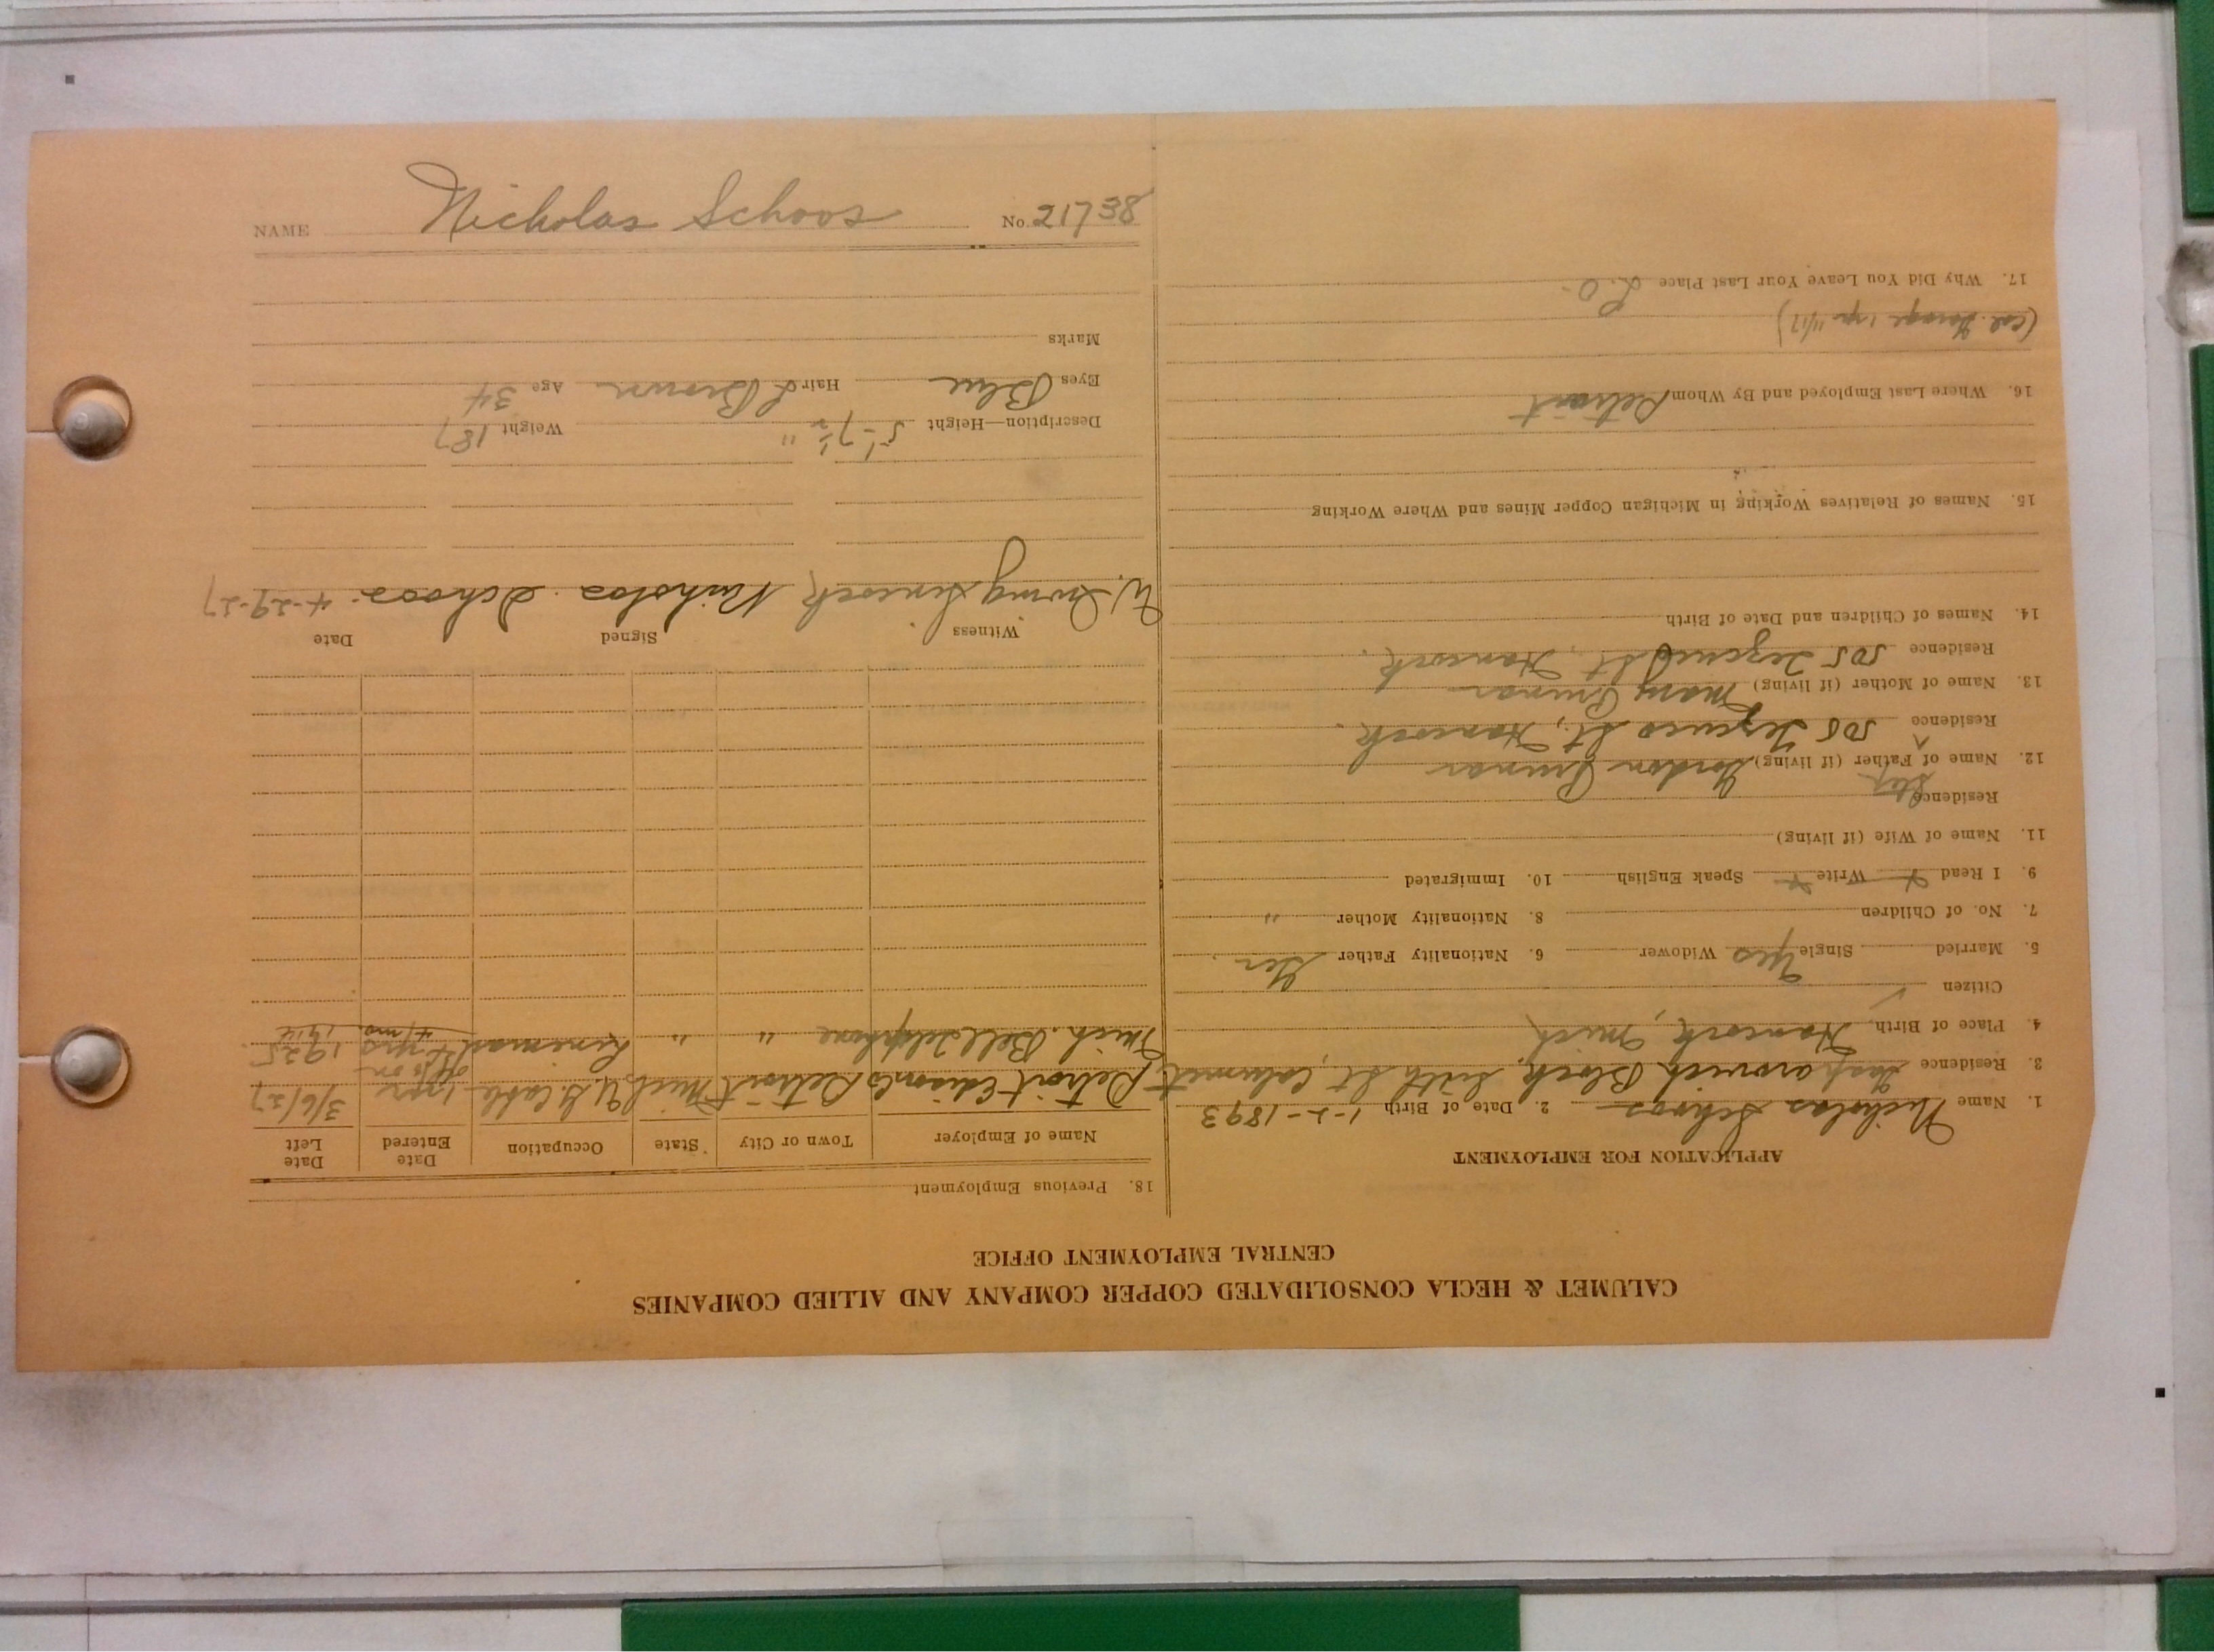 NAME Nicholas Schoos No. 21738
CALUMET & HECLA CONSOLIDATED COPPER COMPANY AND ALLIED COMPANIES
CENTRAL EMPLOYMENT OFFICE
APPLICATION FOR EMPLOYMENT
1. Name Nicholas Schoos 2. Date of Birth 1-2-1893
3. Residence Gasparovich Block, Sixth St, Calumet
4. Place of Birth Hancock, Mich
Citizen ✓
5. Married Single Yes Widower 6. Nationality Father Ger.
7. No. of Children 8. Nationality Mother "
9. I Read x Write x Speak English 10. Immigrated
11. Name of Wife (if living)
Residence
Step
12. Name of ^ Father (if living) Gordon
Residence 505 Tezcuco St, Hancock.
13. Name of Mother (if living) Mary
Residence 505 Tezcuco St, Hancock.
14. Names of Children and Date of Birth
15. Names of Relatives Working in Michigan Copper Mines and Where Working
16. Where Last Employed and By Whom Detroit
(Cal. Garage 1 yr 11/17)
17. Why Did You Leave Your Last Place L.O.
18. Previous Employment
Name of Employer Town or City State Occupation Date Entered Date Left
Detroit Edison Co Detroit Mich U.G. Cable 1 yr 3/6/27
off & on
Mich. Bell Telephone " " Lineman 4 yrs 1925
4/mo. 1914
Witness Signed Date
W. Irving Nicholas Schoos 4-29-27
Description—Height 5'-7½" Weight 187
Eyes Blue Hair L Brown Age 34
Marks